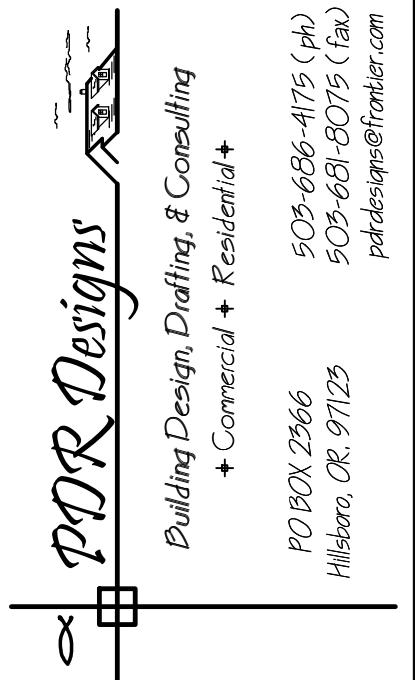 PDR Designs
Building Design, Drafting, & Consulting
Commercial Residential
PO BOX 2366
Hillsboro, OR. 97123
503-686-4175 (ph)
503-681-8075 (fax)
pdrdesigns@frontier.com